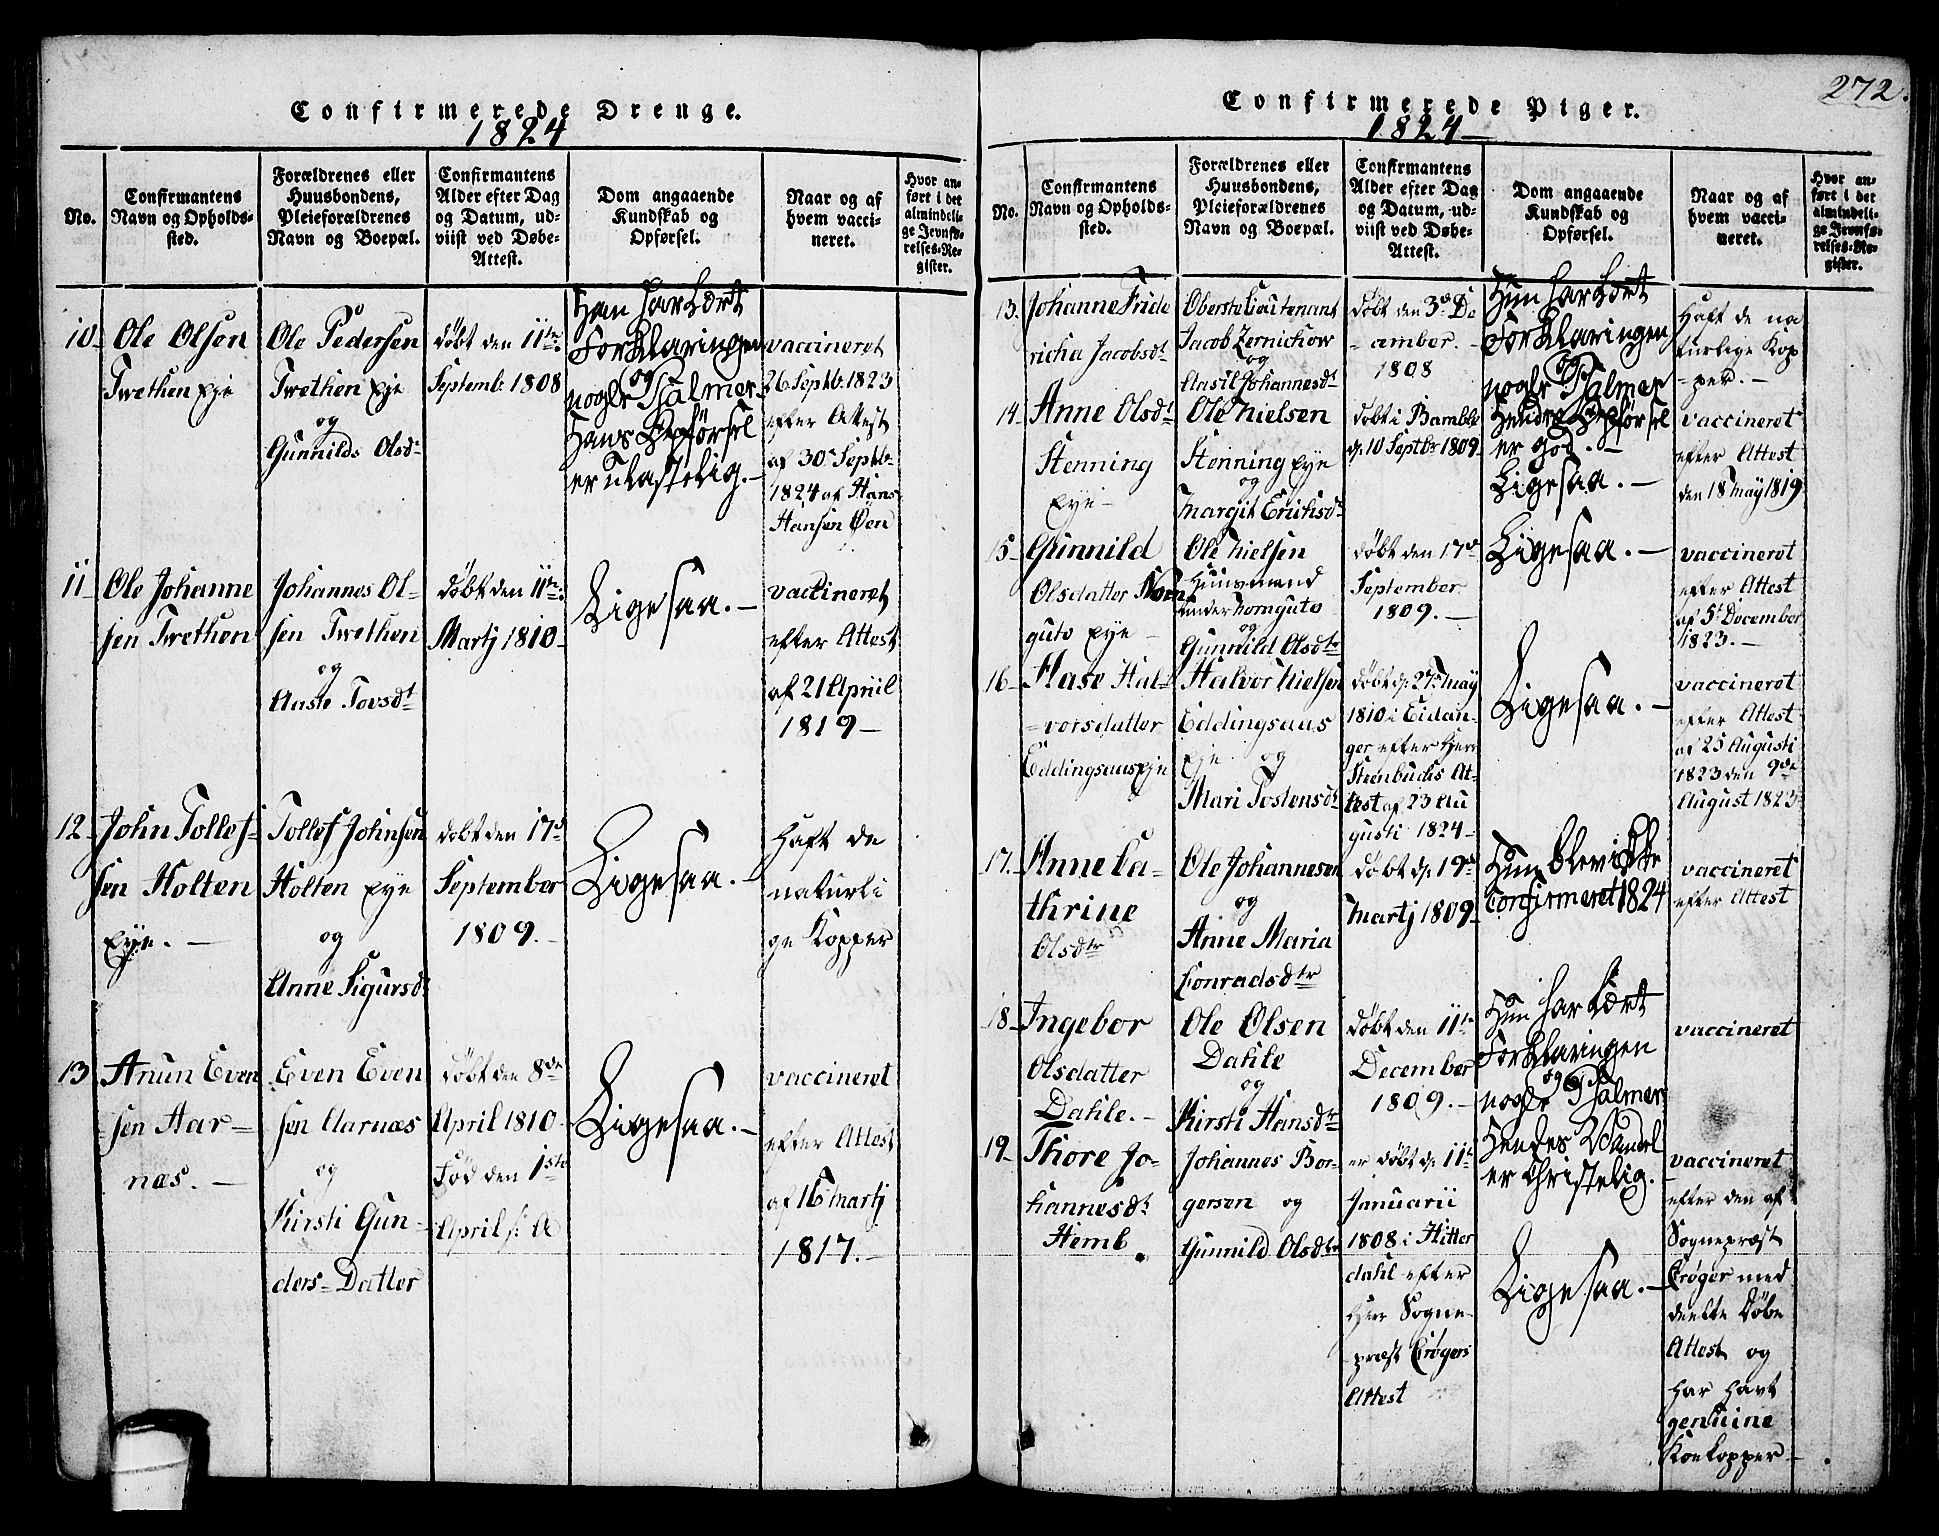 272.
Confirmerede Drenge.
1824
No.
Confirmantens
Navn og Opholds-
sted.
Forældrenes eller
Huusbondens,
Pleieforældrenes
Navn og Boepæl.
Confirmantens
Alder efter Dag
og Datum, ud-
viist ved Døbe-
Attest.
Dom angaaende
Kundskab og
Opførsel.
Naar og af
hvem vacci-
neret.
Hvor an-
ført i det
almindeli-
ge Jevnfø-
relses-Re-
gister.
10
Ole Olsen
Twethen Eje
Ole Pedersen
Twethen Eje
og
Gunnilds Olsd
døbt den 11te
Septemb. 1808
Han har Lært
Forklaringen
og
nogle Psalmer.
Hans Opførsel
er Ulastelig.-
vaccineret
26 Septb. 1823
efter Attest
af 30 Septb
1824 af Hans
Hansen Øen
11
Ole Johanne
sen Twethen
Johannes Ol-
sen Twethen
og
Aaste Tovsdt
døbt den 11te
Martj 1810
Ligesaa.-
vaccineret
efter Attest
af 21 April
1819-
12
John Tollef-
sen Holten
Eye.-
Tollef Johnsen
Holten Eye
og
Anne Sigursdt
døbt den 17d
September
1809.-
Ligesaa.-
Haft de
naturli
ge Kopper
13
Anun Even
sen Aar-
næs.-
Even Even
sen Aarnæs
og
Kirsti Gun-
ders-Datter
døbt den 8de
April 1810
Fød den 1ste
April s: A
Ligesaa.-
vaccineret
efter Attest
af 16 Martj
1817.-
Confirmerede Piger.
1824
No.
Confirmantens
Navn og Opholds-
sted.
Forældrenes eller
Huusbondens,
Pleieforældrenes
Navn og Boepæl.
Confirmantens
Alder efter Dag
og Datum, ud-
viist ved Døbe-
Attest.
Dom angaaende
Kundskab og
Opførsel.
Naar og af
hvem vacci-
neret.
Hvor an-
ført i det
almindeli-
ge Jevnfø-
relses-Re-
gister.
13.
Johanne Fride
richa Jacobsdt
Oberstlieutenant
Jacob Zernichow
og
Aasil Johannesdt
døbt den 3de De
cember.
1808
Hun har Lært
Forklaringen
og
nogle Psalmer
Hendes Opførsel
er god.-
Haft de na
turlige Kop
per.-
14
Anne Olsdt
Stenning
Eye-
Ole Nielsen
Stenning Eye
og
Margit Erichsdt
døbt i Bamble
d. 10 Septbr 1809
Ligesaa.-
vaccineret
efter Attest
den 18 May 1819
15
Gunnild
Olsdatter Nom
guto Eye-
Ole Nielsen
Huusmand
under Nomguto
og
Gunnild Olsdtr
døbt den 17de
September
1809.-
Ligesaa.-
vaccineret
efter Attest
af 5t December
1823.-
16
Aase Hal
vorsdatter
Eddingsaas Eje
Halvor Nielsen
Eddingsaas
Eje og
Mari Tostensdt
døbt d. 27 May
1810 i Eidan-
ger efter Herr
Steenbuchs At-
test af 23 Au
gusti 1824-
Ligesaa.-
vaccineret
efter Attest
af 25 Augusti
1823 den 9de
August 1823
17.
Anne Ca-
thrine
Olsdtr
Ole Johannesen
og
Anne Maria
Conradsdtr
døbt d. 19de
Martj 1809
Hun blev ikke
Confirmeret 1824
vaccineret
efter Attest
18
Ingebor
Olsdatter
Dahle.-
Ole Olsen
Dahle
og
Kirsti Hansdtr
døbt den 11te
December
1809.-
Hun har Lært
Forklaringen
og
nogle Psalmer
Hendes Vandel
er Christelig.
vaccineret
19
Thore Jo-
hannesdt
Hemb.
Johannes Bor-
gersen og
Gunnild Olsdtr
er døbt d. 11te
Januarii
1808 i Hitter
dahl efter
Herr Sogne-
præst Crøgers
Attest
Ligesaa.-
vaccineret
efter den af
Sognepræst
Crøger med
deelte Døbe
Attest og
har havt
genuine
Koekopper-